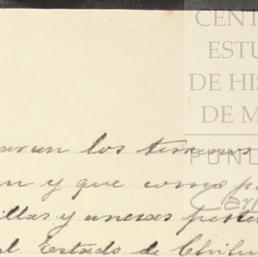 CENT
ESTU
DE HIS
DE M
FUND
Car
aran los terrenos
an y que como p
illas y anexas perte
al Estado de Chihu